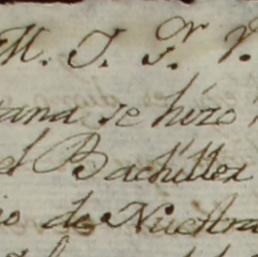 M. I. Sr. V.
tana se hizo
el Bachiller
io de Nuestra